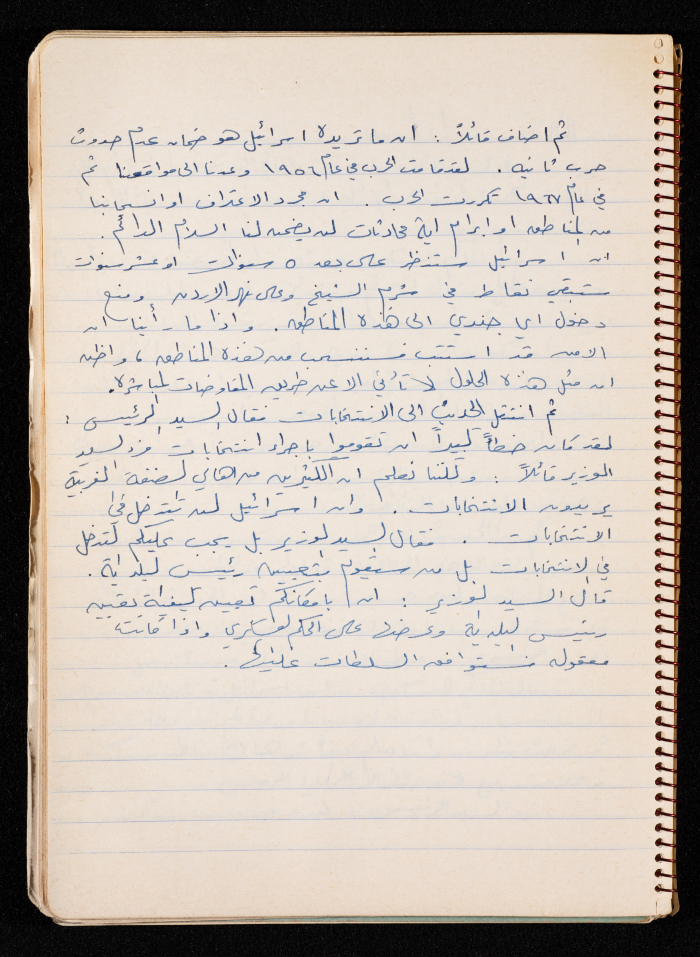 ثم اضاف قائلاً : ان ما تريده اسرائيل هو ضمان عدم حدوث
حرب ثانيه . لقد قامت الحرب في عام ١٩٥٦ وعدنا الى مواقعنا ثم
في عام ١٩٦٧ تكررت الحرب . ان مجرد الاعتراف او انسحابنا
من المناطق او ابرام اية محادثات لن يضمن لنا السلام الدائم .
ان اسرائيل ستنتظر على بعد ٥ سنوات او عشر سنوات
ستبقي نقاط في شرم الشيخ وعلى نهر الاردن ومنع
دخول اي جندي الى هذه المناطق . واذا ما رأينا ان
الامن قد استتب فسننسحب من هذه المناطق ، واظن
ان مثل هذه الحلول لا تأتي الا عن طريق المفاوضات المباشره .
ثم انتقل الحديث الى الانتخابات فقال السيد الرئيس :
لقد كان خطأً كبيراً ان تقوموا باجراء انتخابات فرد السيد
الوزير قائلاً : ولكننا نعلم ان الكثيرين من اهالي الضفة الغربية
يريدون الانتخابات . وان اسرائيل لن تتدخل في
الانتخابات . فقال السيد الوزير بل يجب عليكم التدخل
في الانتخابات بل من سيقوم بتعيين رئيس البلدية .
قال السيد الوزير : ان بامكانكم تعيين كيفية تعيين
رئيس البلدية وعرضها على الحكم العسكري واذا كانت
معقوله فستوافق السلطات عليها .